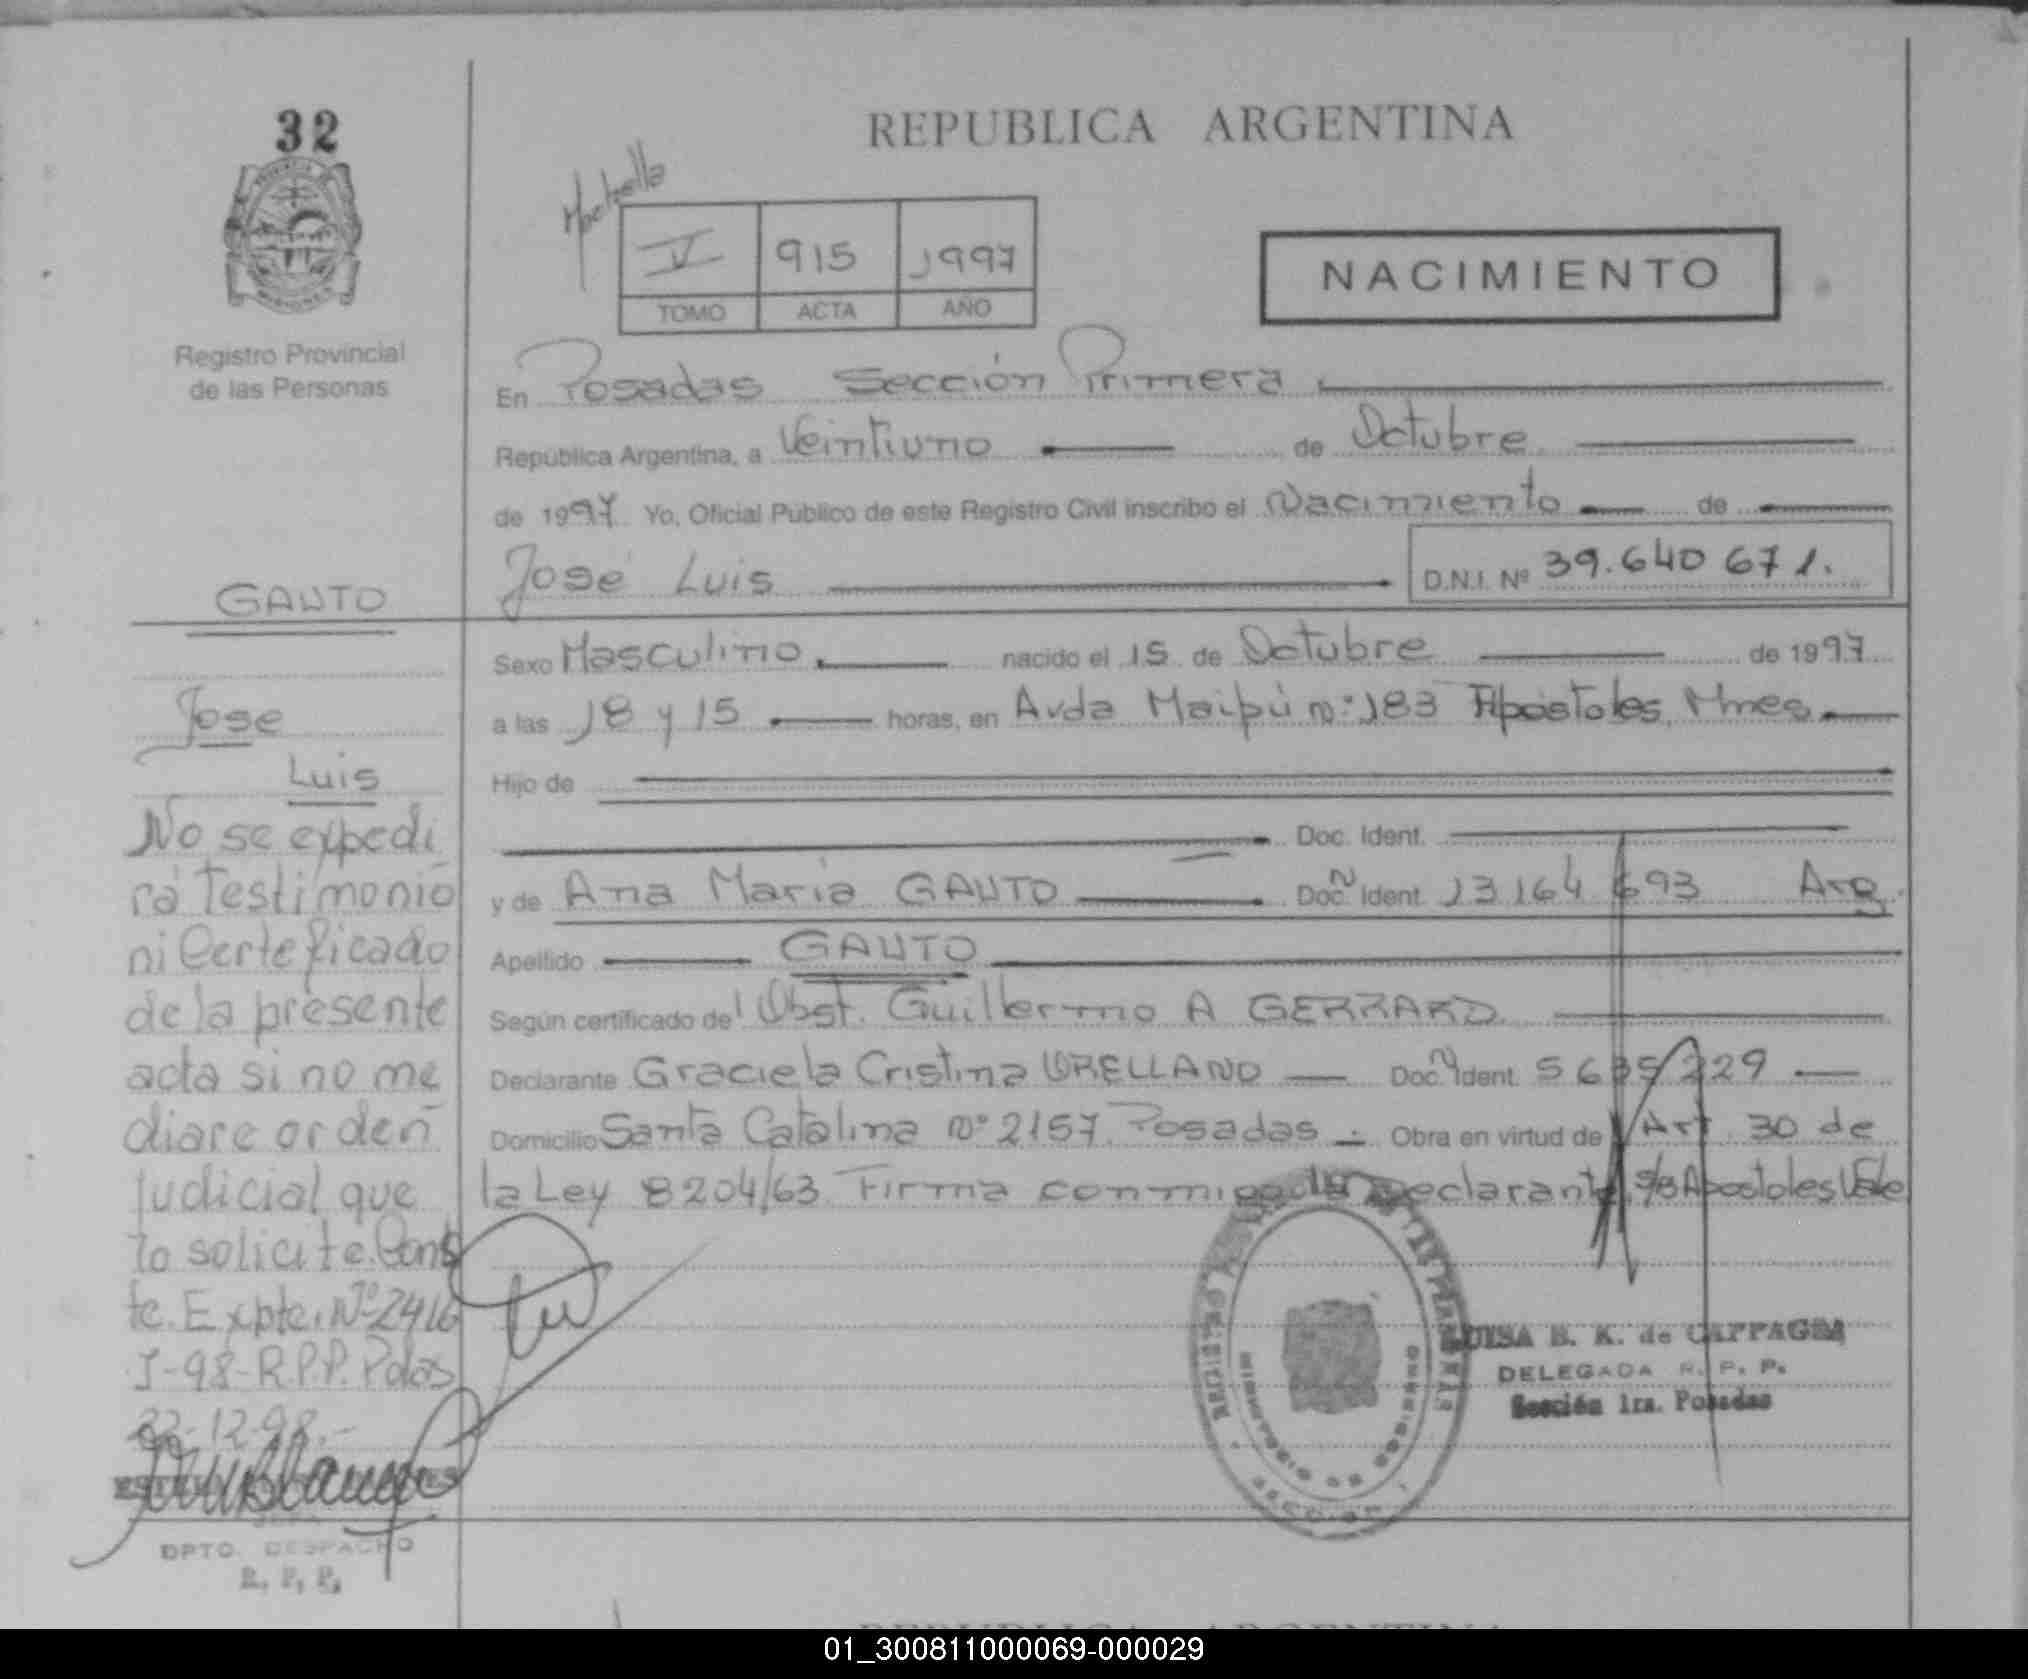 32
REPUBLICA ARGENTINA
V 915 1997
TOMO ACTA AÑO
NACIMIENTO
Registro Provincial
de las Personas
En Posadas Sección Primera
República Argentina, a Veintiuno de Octubre
de 1997 Yo, Oficial Público de este Registro Civil inscribo el Nacimiento de
José Luis D.N.I. Nº 39.640 671.
GAUTO
Jose
Luis
Sexo Masculino nacido el 15 de Octubre de 1997
a las 18 y 15 horas, en Avda Maipú Nº 183 Apóstoles, Mnes
Hijo de
Doc. Ident.
y de Ana Maria GAUTO Doc. N Ident. 13.164 693 Arg.
Apellido GAUTO
Según certificado del Obst. Guillermo A GERRARD
Declarante Graciela Cristina ORELLANO Doc. N Ident. 5 635 229
Domicilio Santa Catalina Nº 2157 Posadas Obra en virtud de Art 30 de
la Ley 8204/63 Firma conmigo la Declarante. S/B Apostoles Vale
No se expedi
rá Testimonio
ni Certeficado
de la presente
acta si no me
diare orden
judicial que
lo solicite. Cons
te. Expte. Nº 2416
J-98-R.P.P. Pdas
22-12-98.-
DPTO. DESPACHO
R. P. P.
REGISTRO DE LAS PERSONAS
MINISTERIO DE GOBIERNO
LUISA B. K. de
DELEGADA R. P. P.
Sección 1ra. Posadas
01_300811000069-000029